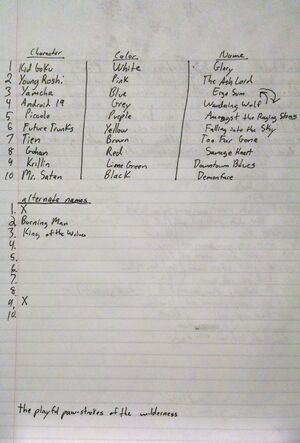 Character Color Name
1 Kid Goku White Glory
2 Young Roshi Pink The Ash Lord
3 Yamcha Blue Ergo Sum
4 Android 19 Grey Wandering Wolf
5 Piccolo Purple Amongst the Raging Stars
6 Future Trunks Yellow Falling into the Sky
7 Tien Brown Too Far Gone
8 Gohan Red Savage Heart
9 Krillin Lime Green Downtown Blues
10 Mr. Satan Black Demonface
alternate names
1. X
2 Burning Man
3. King of the Wolves
4.
5.
6.
7.
8.
9. X
10.
the playful paw-strokes of the wilderness